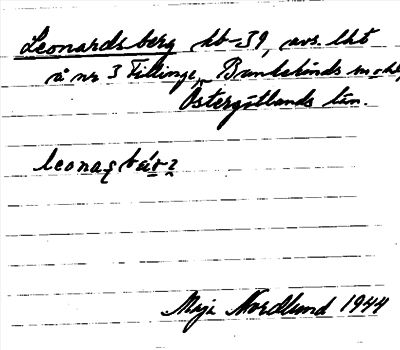 Leonardsberg hb 39, avs. lht
å nr 3 Tillinge, Bankekinds sn o hd,
Östergötlands län.
leona
Maja Nordlund 1944